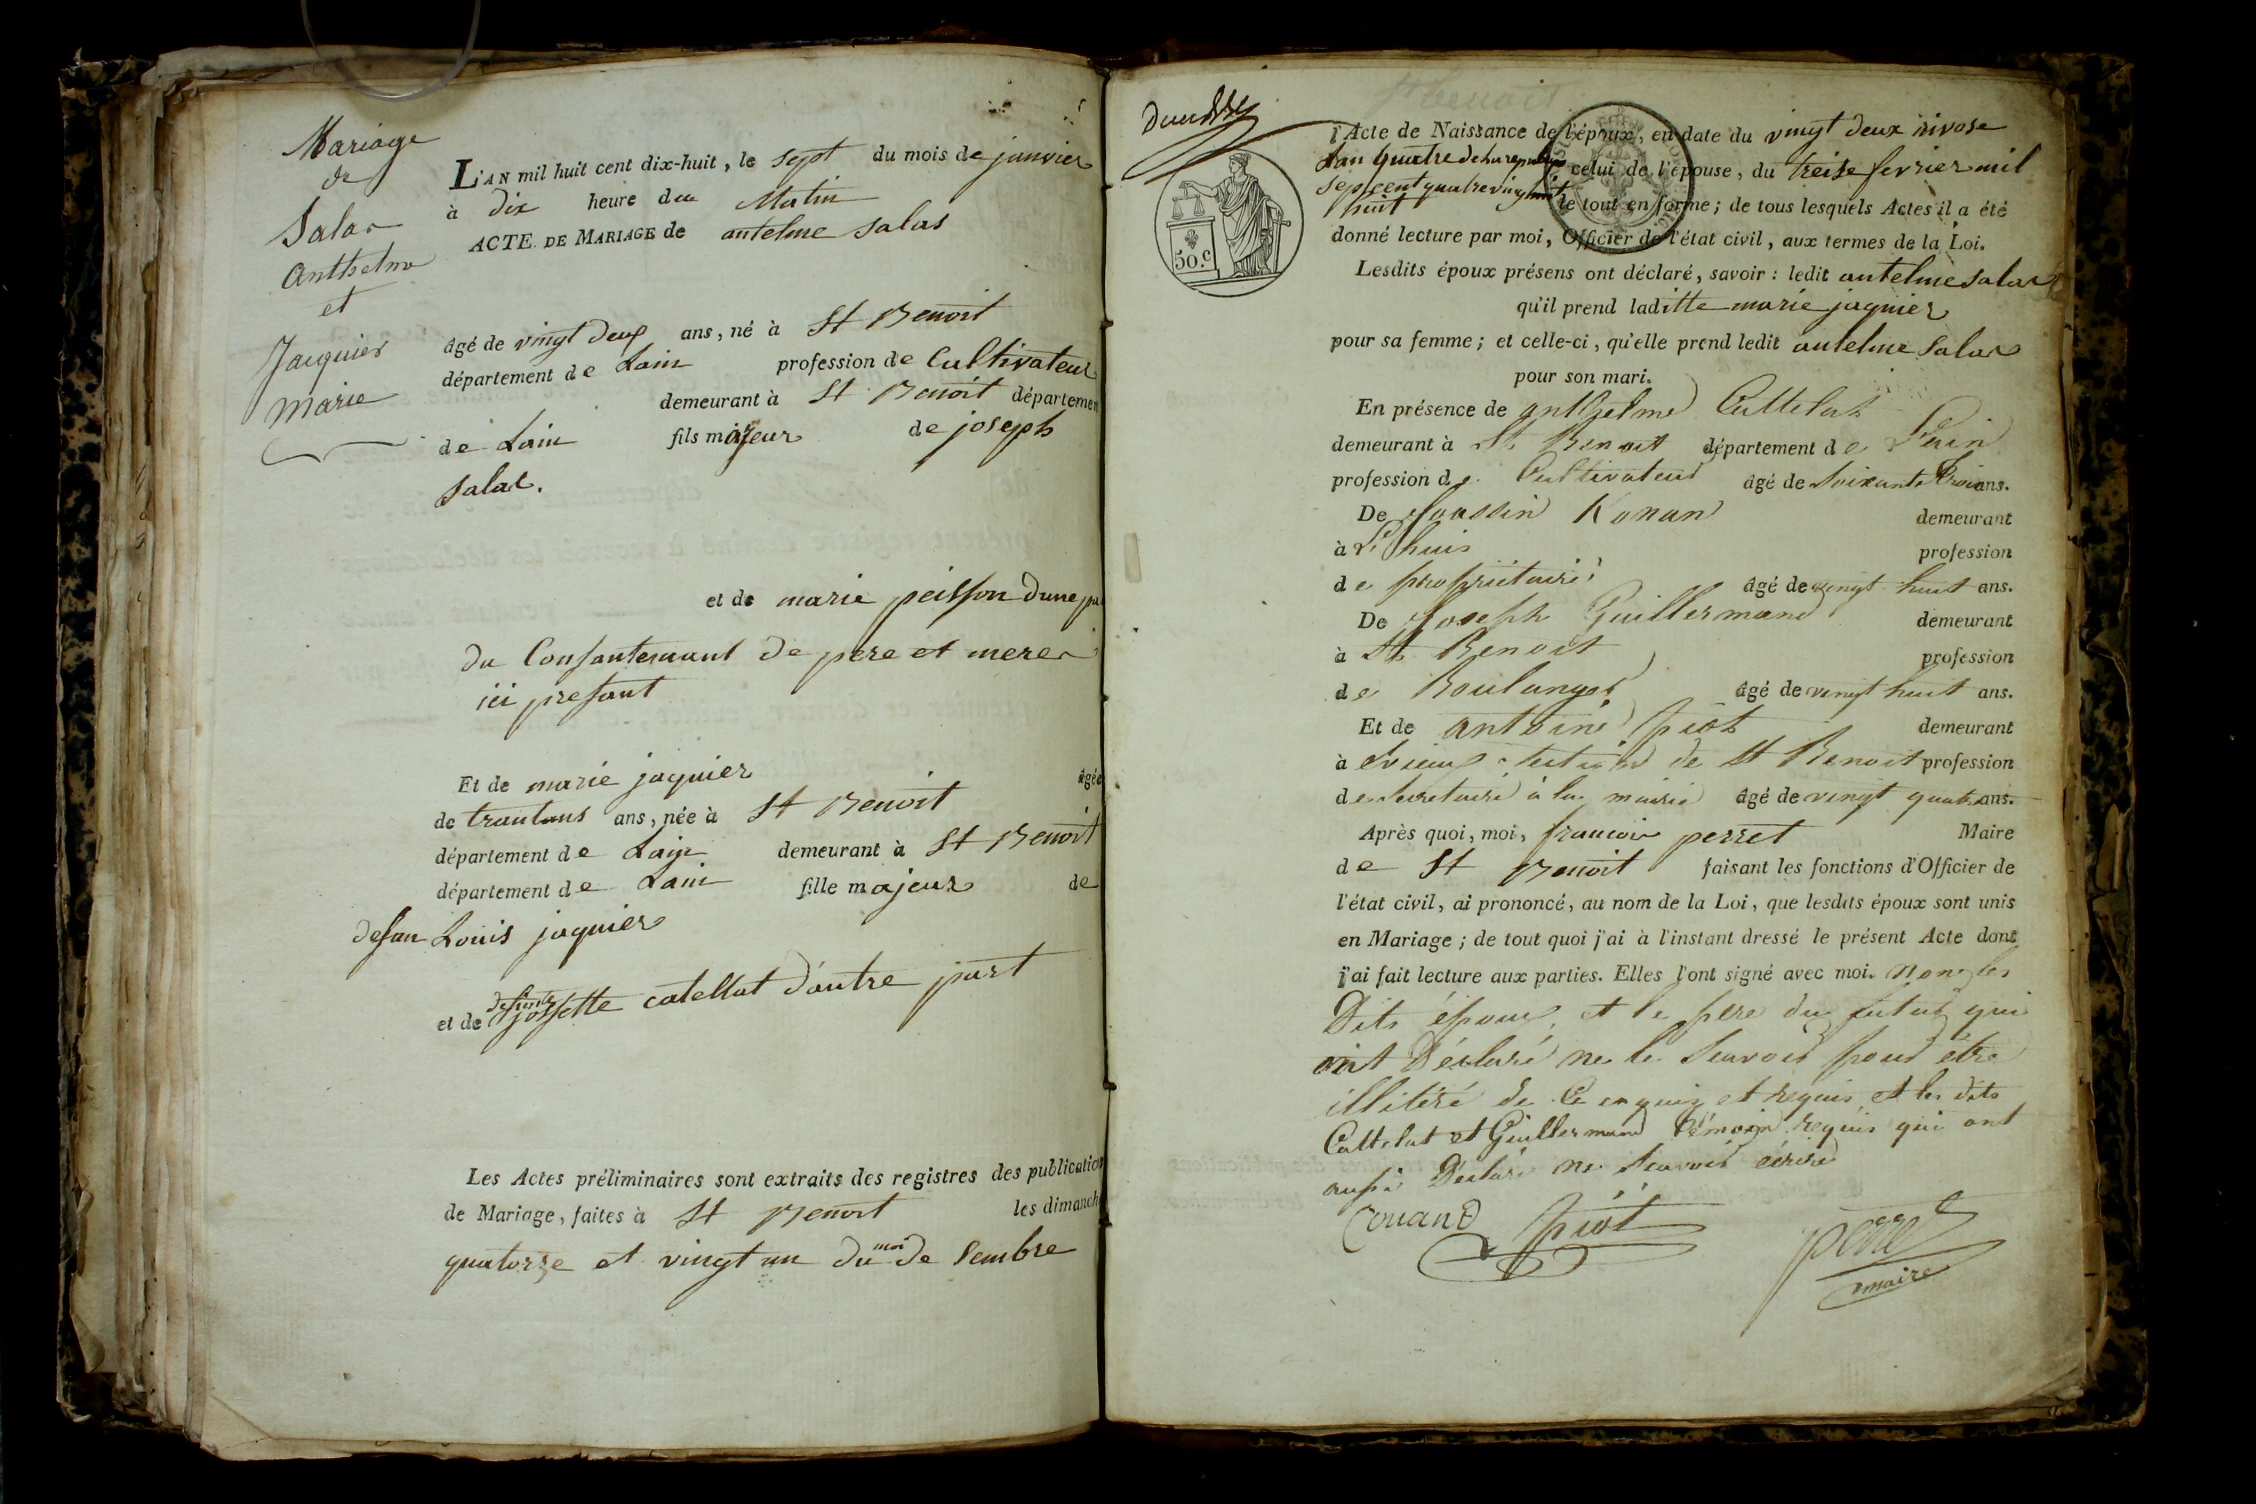 Mariage
de
Salar
Anthelme
et
Jacquier
Marie
L'AN mil huit cent dix-huit, le sept du mois de janvier
à dix heure du Matin
ACTE DE MARIAGE de antelme salas
âgé de vingt deux ans, né à St Benoit
département de Lain profession de Cultivateur
demeurant à St Benoit départemen
de Lain fils majeur de joseph
salar.
et de marie peisson dune pa
du Consantemant de pere et mere
ici presant
Et de marie jaquier âgée
de trantans ans, née à St Benoit
département de Lain demeurant à St Benoit
département de Lain fille majeur de
defun Louis jaquier
et de defunte josette catellat d'autre part
Les Actes préliminaires sont extraits des registres des publication
de Mariage, faites à St Benoit les dimanch
quatorze et vingt un du moi de Sembre
l'Acte de Naissance de l'époux, en date du vingt deux nivose
lan quatre de la republique celui de l'épouse, du treise fevrier mil
sept cent quatre vingt
huit le tout en forme; de tous lesquels Actes il a été
donné lecture par moi, Officier de l'état civil, aux termes de la Loi.
50.c
Lesdits époux présens ont déclaré, savoir: ledit antelme salar
qu'il prend laditte marie jaquier
pour sa femme; et celle-ci, qu'elle prend ledit antelme salar
pour son mari.
En présence de anthelme Cattelat
demeurant à St Benoit département de L'ain
profession de Cultivateur âgé de soixante trois ans.
De Joassin Konan demeurant
à L'huis profession
de propriétaire âgé de vingt huit ans.
De Joseph Guillermand demeurant
à St Benoit profession
de Boulanger âgé de vingt huit ans.
Et de antoine piot demeurant
à Evieux de St Benoit profession
de secretaire à la mairie âgé de vingt quatre ans.
Après quoi, moi, francois perret Maire
de St Benoit faisant les fonctions d'Officier de
l'état civil, ai prononcé, au nom de la Loi, que lesdits époux sont unis
en Mariage; de tout quoi j'ai à l'instant dressé le présent Acte dont
j'ai fait lecture aux parties. Elles l'ont signé avec moi. non les
Dits époux, et le pere du futur qui
ont Déclaré ne le scavoir pour être
illitéré de ce enquis et requis et les dits
Cattelat et Guillermand témoin requis qui ont
aussi Déclaré ne scavoir écrire
Conand piot perret
maire